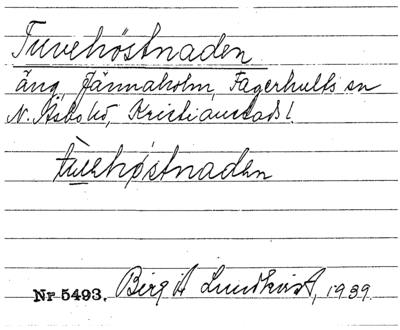 Tuvehöstnaden
äng, Jännaholm, Fagerhults sn
N. Åsbo hd, Kristianstads l.
tuvehöstnaden
Nr 5493. Birgit Lundkvist, 1939